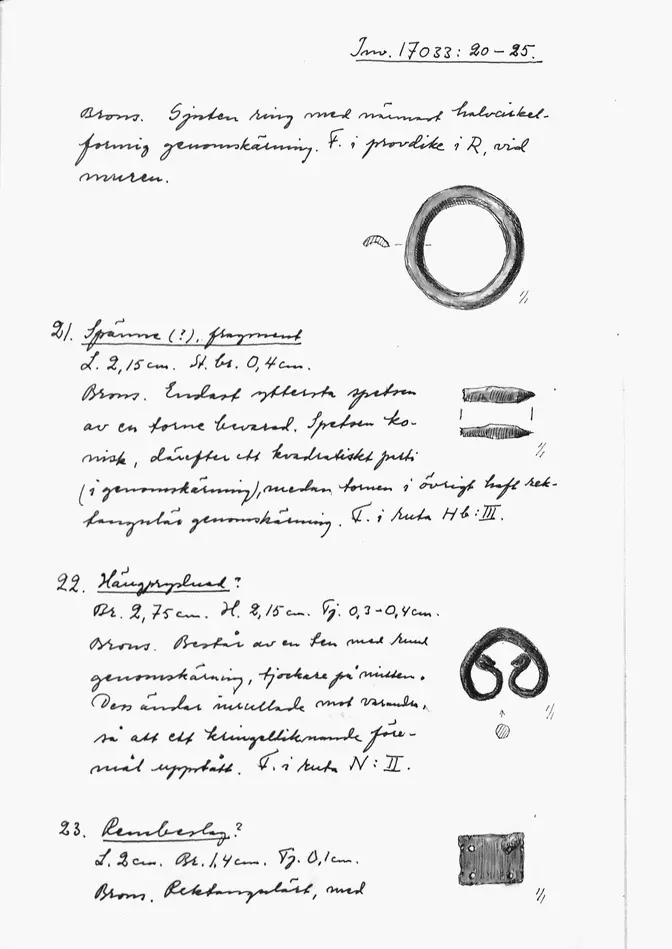 Inv. 17033: 20–25.
Brons. Gjuten ring med närmast halvcirkel-
formig genomskärning. F. i provdike i R, vid
muren.
1/1
21. Spänne (?), fragment
L. 2,15 cm. St. br. 0,4 cm.
Brons. Endast yttersta spetsen
av en torne bevarad. Spetsen ko-
nisk, därefter ett kvadratiskt parti
(i genomskärning), medan tornen i övrigt haft rek-
tangulär genomskärning. F. i ruta Hb: III.
1/1
22. Hängprydnad?
Br. 2,75 cm. H. 2,15 cm. Tj. 0,3–0,4 cm.
Brons. Består av en ten med rund
genomskärning, tjockare på mitten.
Dess ändar inrullade mot varandra,
så att ett kringelliknande före-
mål uppstått. F. i ruta N: II.
1/1
23. Rembeslag?
L. 2 cm. Br. 1,4 cm. Tj. 0,1 cm.
Brons. Rektangulärt, med
1/1